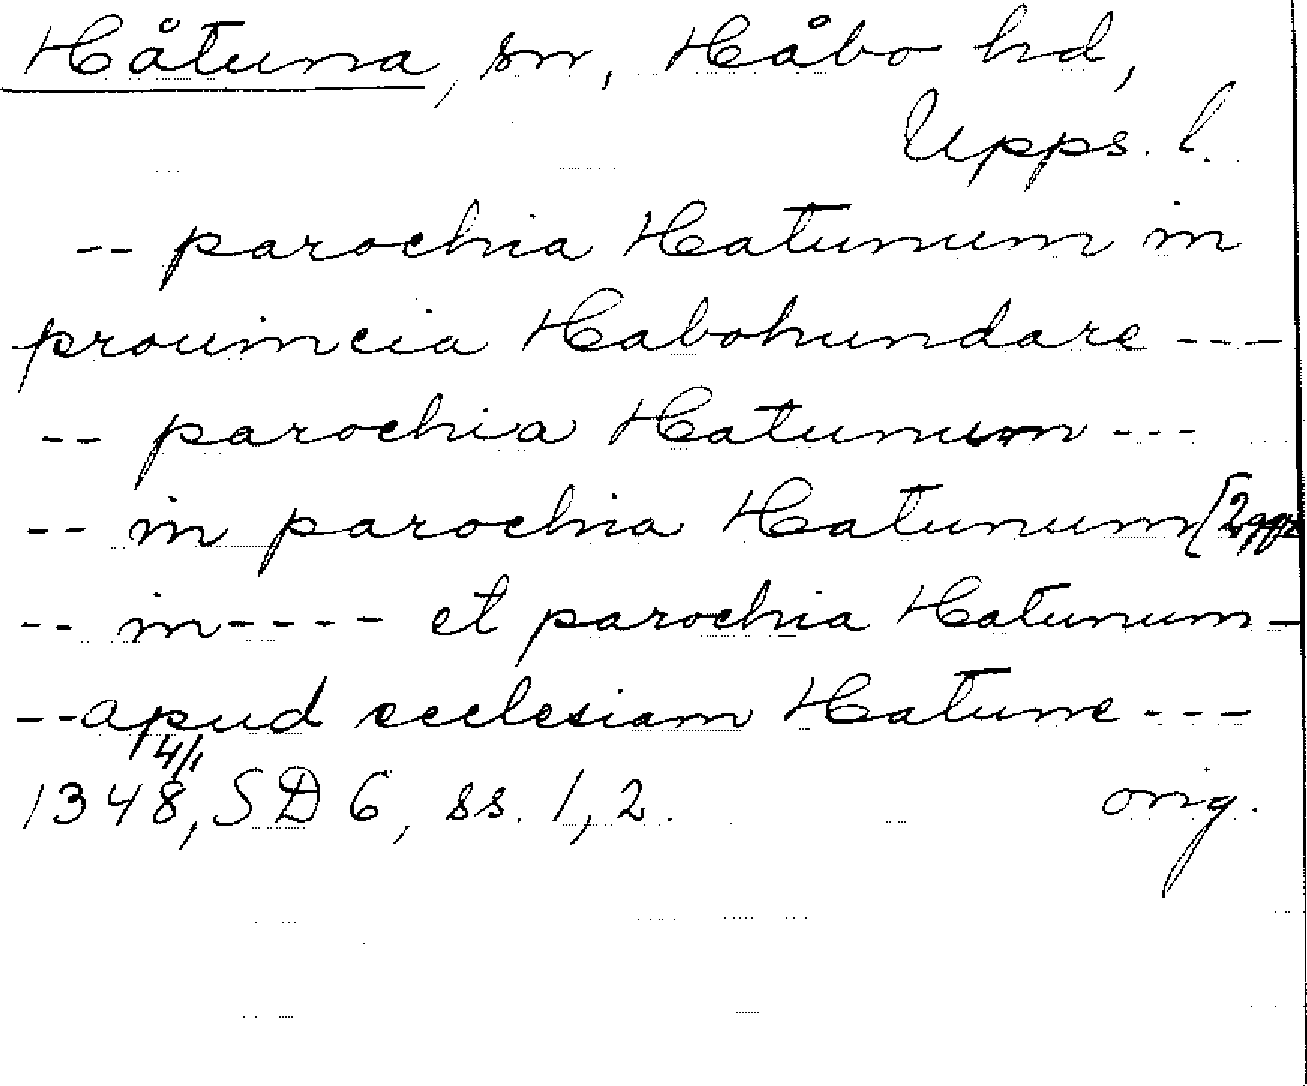 Håtuna, sn, Håbo hd,
Upps. l.
-- parochia Hatunum in
prouincia Habohundare ---
-- parochia Hatunum ---
-- in parochia Hatunum [2 ggr
-- in ---- et parochia Hatunum -
-- apud ecclesiam Hatune ---
14/1
1348, SD 6, ss. 1, 2. orig.